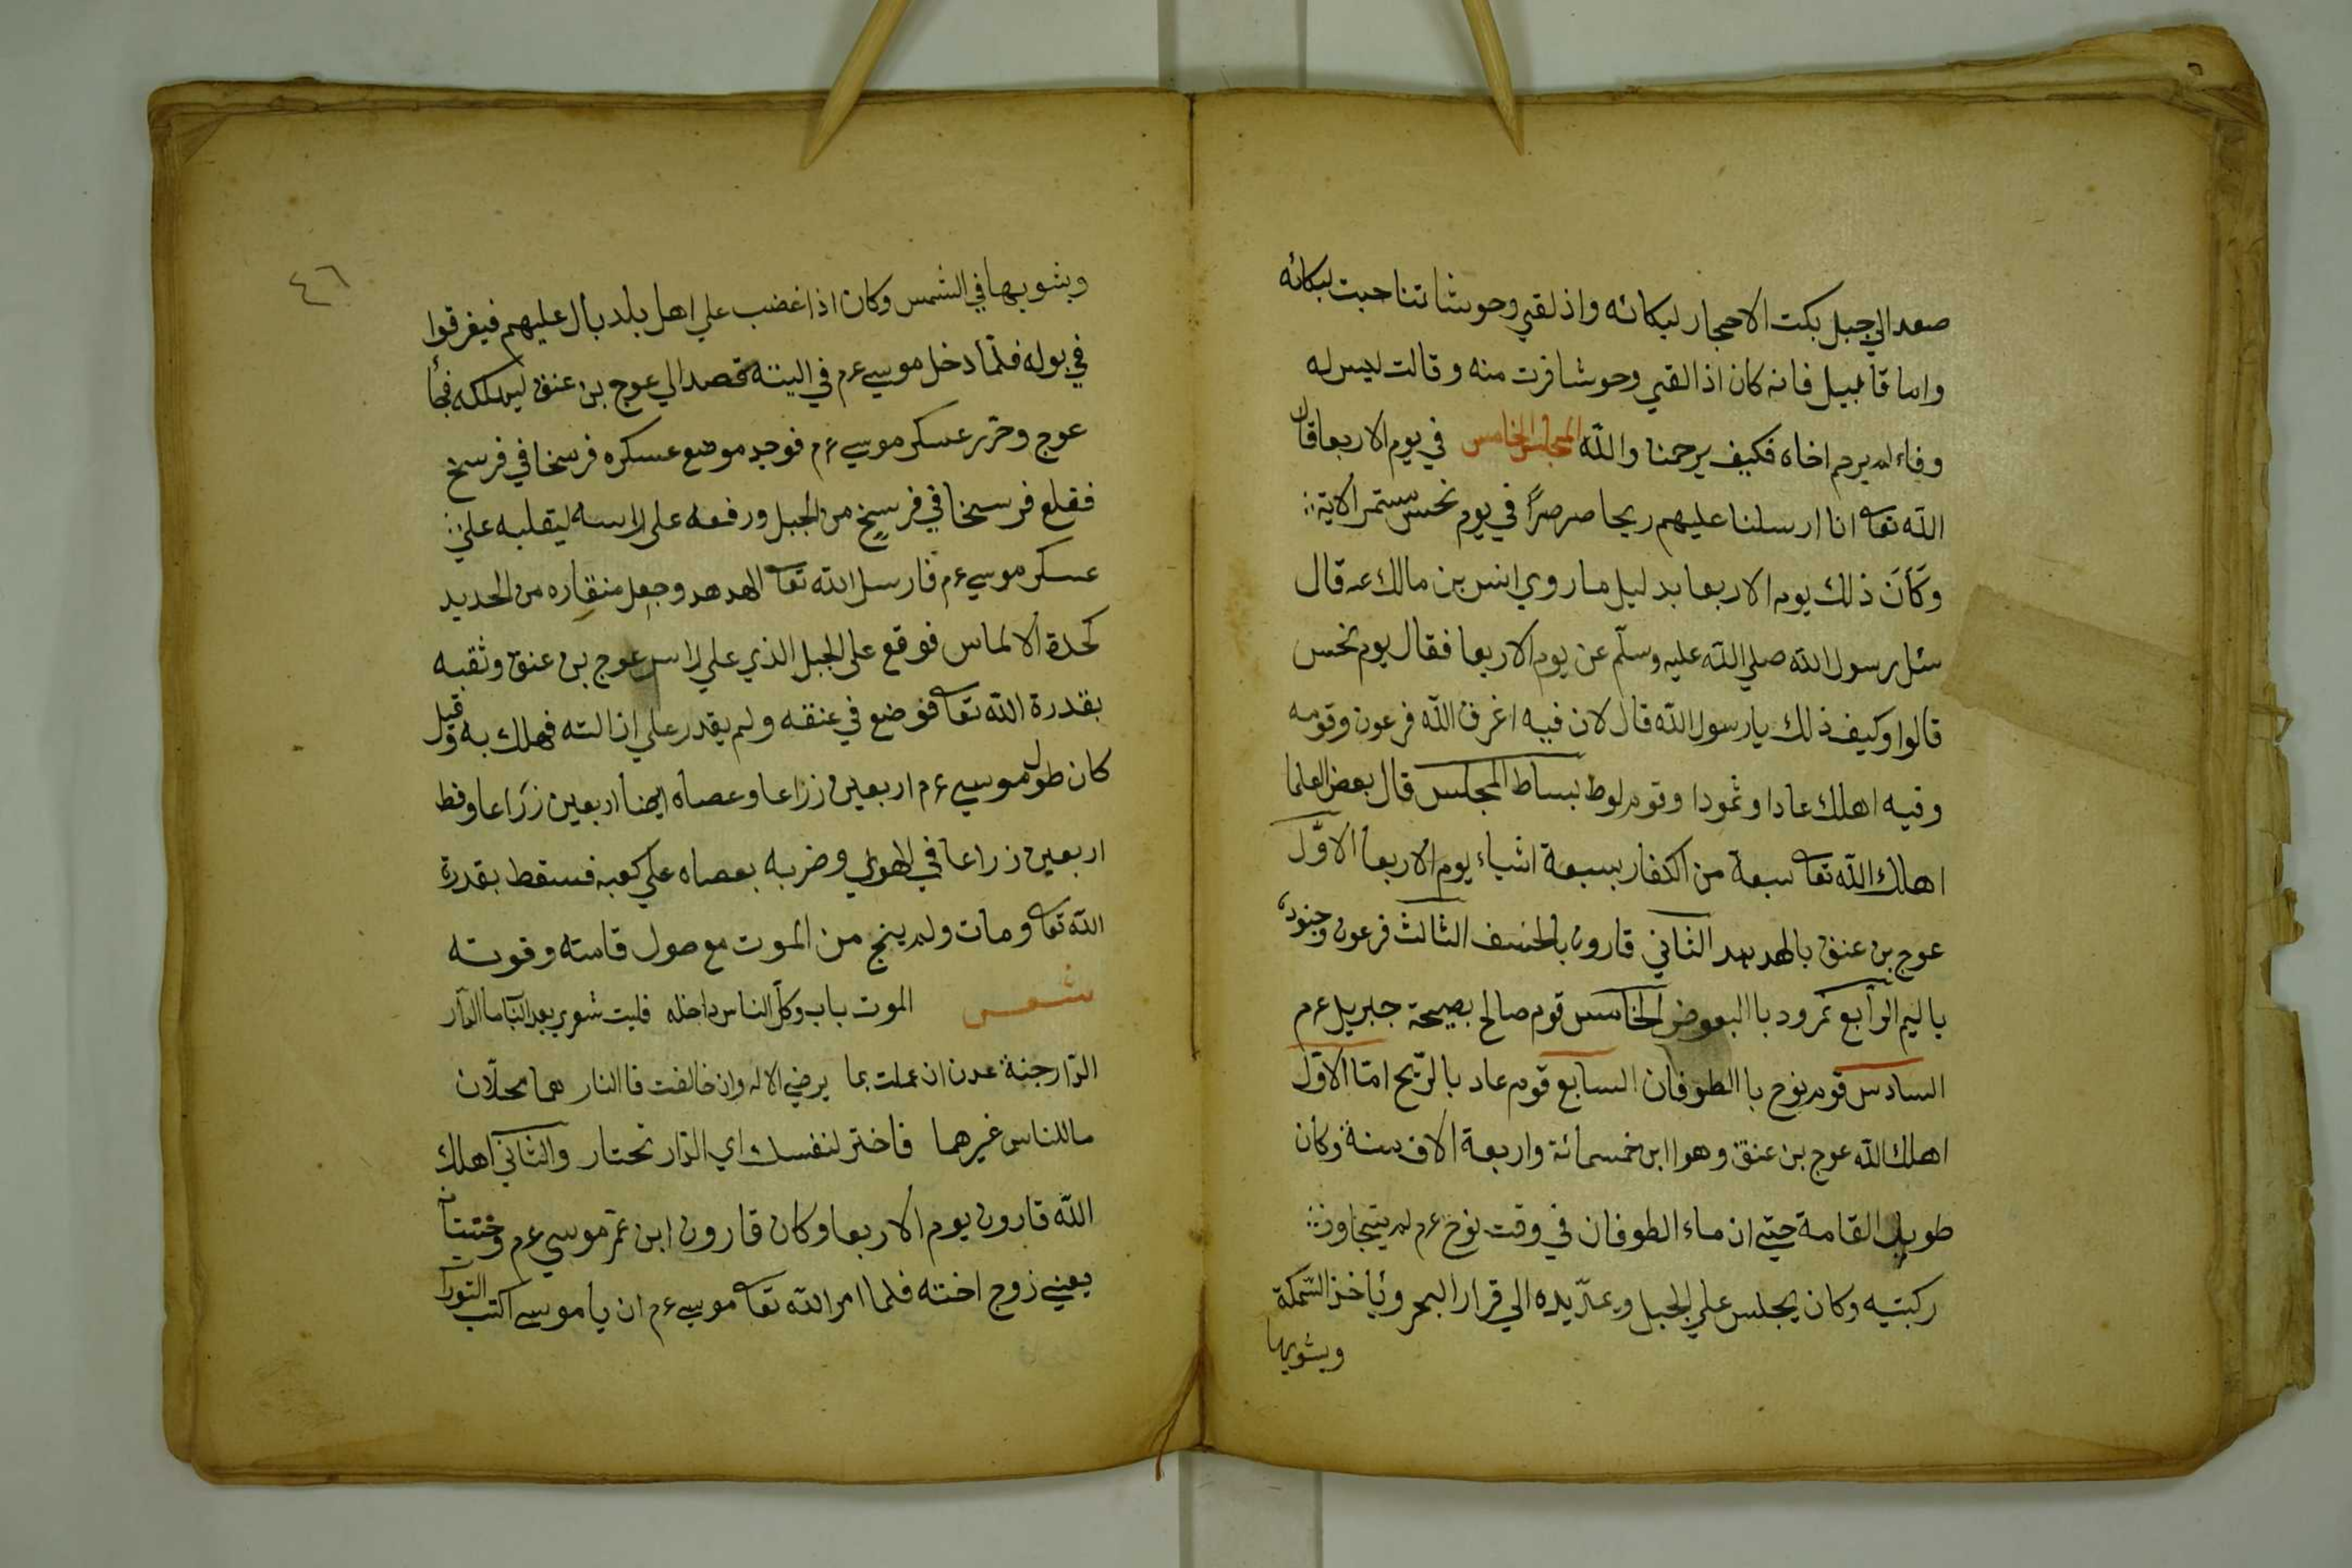 صعد الي جبل بكت الاحجار لبكائه واذ لقي وحوشا تناحبت لبكائه
واما قابيل فانه كان اذا لقي وحوشا فرت منه وقالت ليس له
وفاء لم يرحم اخاه فكيف يرحمنا والله المجلس الخامس في يوم الاربعا قال
الله تعا انا ارسلنا عليهم ريحا صرصرًا في يوم نحس مستمر الاية
وكان ذلك يوم الاربعا بدليل ما روي انس بن مالك عه قال
سئل رسول الله صلي الله عليه وسلّم عن يوم الاربعا فقال يوم نحس
قالوا وكيف ذلك يا رسول الله قال لان فيه اغرق الله فرعون وقومه
وفيه اهلك عادا وثمودا وقوم لوط بساط المجلس قال بعض العلما
اهلك الله تعا سبعة من الكفار بسبعة اشياء يوم الاربعا الاوّل
عوج بن عنق بالهدهد الثاني قارون بالخسف الثالث فرعون وجنوده
باليم الرابع نمرود باالبعوض الخامس قوم صالح بصيحة جبريل ع م
السادس قوم نوح باالطوفان السابع قوم عاد بالرّيح امّا الاوّل
اهلك الله عوج بن عنق وهو ابن خمسمائة واربعة الاف سنة وكان
طويل القامة حتي ان ماء الطوفان في وقت نوح ع م لم يتجاوز
ركبتيه وكان يجلس علي الجبل ويمدّ يده الي قرار البحر ويأخذ السّمكة
ويشويها
٤٦
ويشويها في الشمس وكان اذا غضب علي اهل بلد بال عليهم فيغرقوا
في بوله فلمّا دخل موسي ع م في التيه قصد الي عوج بن عنق ليهلكه فجأ
عوج وحزر عسكر موسي ع م فوجد موضع عسكره فرسخا في فرسخ
فقلع فرسخا في فرسخ من الجبل ورفعه علي راسه ليقلبه علي
عسكر موسي ع م فارسل الله تعا الهدهد وجعل منقاره من الحديد
كحدة الالماس فوقع علي الجبل الذي علي راس عوج بن عنق وثقبه
بقدرة الله تعا فوضع في عنقه ولم يقدر علي ازالته فهلك به وقيل
كان طول موسي ع م اربعين زراعا وعصاه ايضا اربعين زراعا ونط
اربعين زراعا في الهوي وضربه بعصاه علي كعبه فسقط بقدرة
الله تعا ومات ولم ينج من الموت مع صول قامته وقوته
شعر الموت باب وكل الناس داخله فليت شعري بعد الباب ما الدّار
الدّار جنة عدن ان عملت بما يرضي الاله وان خالفت فاالنار هما محلّان
ما للناس غيرهما فاختر لنفسك اي الدّار تختار والثاني اهلك
الله قارون يوم الاربعا وكان قارون ابن عم موسي ع م وختنا
يعني زوج اخته فلما امر الله تعا موسي ع م ان يا موسي اكتب التوراة